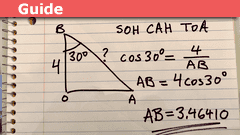 Guide
SOH CAH TOA
B
30°
?
4
O
A
cos30° = 4/AB
AB = 4cos30°
AB = 3.46410